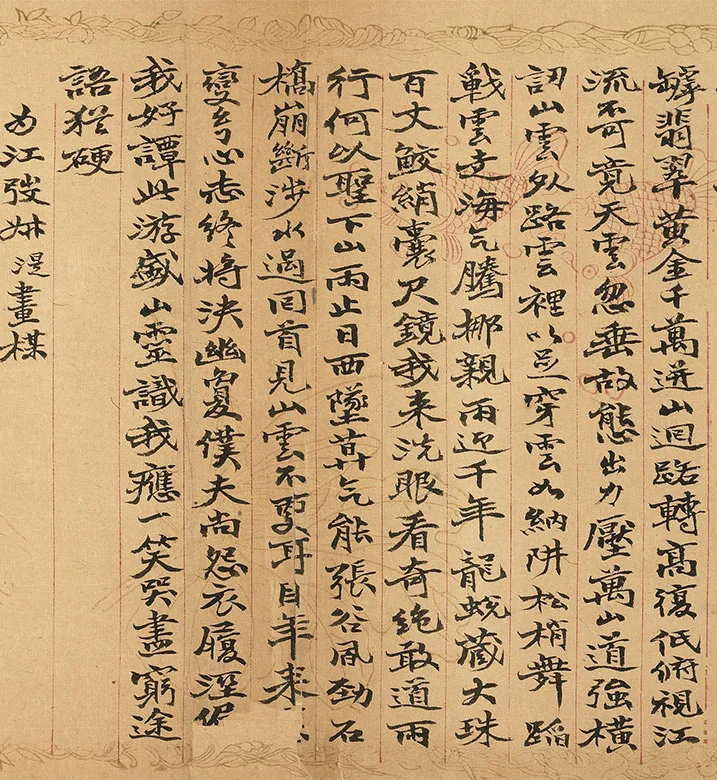 罅翡翠黃金千萬迸山迴路轉高復低俯視江
流不可竟天雲忽垂故態出力壓萬山道強橫
訒山雲外路雲裡以足穿雲如納阱松梢舞蹈
戰雲走海气騰挪親雨迎千年龍蛻藏大珠
百丈鮫綃囊尺鏡我来洗眼看奇絶敢道雨
行何以聖下山雨止日西墜草气能張谷風勁石
橋崩斷涉水過回首見山雲不更耳目年来
變兮心志終將決幽敻僕夫尚怨衣履溼
我好譚此游盛山靈識我應一笑哭盡窮途
語猶硬
为江弢叔湜畫楳